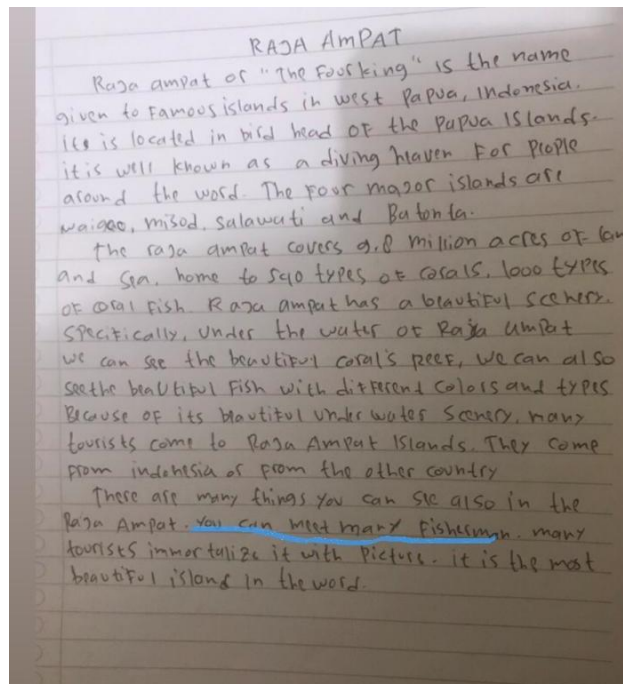 RAJA AMPAT
Raja ampat or "The Four king" is the name
given to Famous islands in west Papua, Indonesia.
it is located in bird head OF the Papua Islands.
it is well known as a diving heaven For People
around the word. The Four major islands are
waigeo, misod, salawati and Batanta.
The raja ampat covers 9.8 million acres of
and sea, home to 540 types of corals, 1000 types
OF coral Fish. Raja ampat has a beautiful scenery.
Specifically, under the water of Raja ampat
we can see the beautiful coral's reef, we can also
see the beautiful Fish with different colors and types
Because of its beautiful under water scenery, many
tourists come to Raja Ampat Islands. They come
From indonesia or from the other country
There are many things you can see also in the
Raja Ampat. You can meet many Fisherman. many
tourists immortalize it with picture. it is the most
beautiful island in the word.